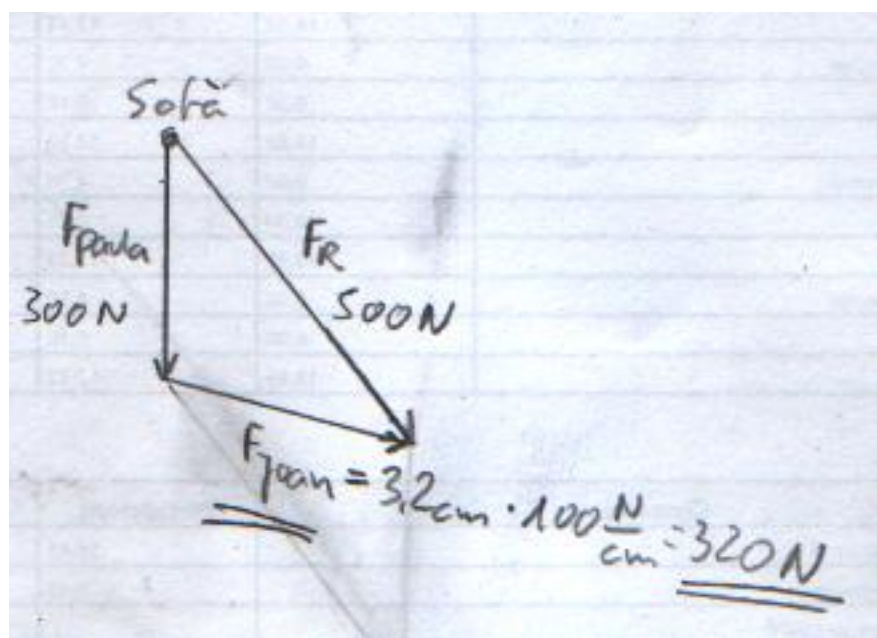 Sofà
Fpaula
300N
FR
500N
FJoan = 3,2cm · 100 N/cm = 320 N